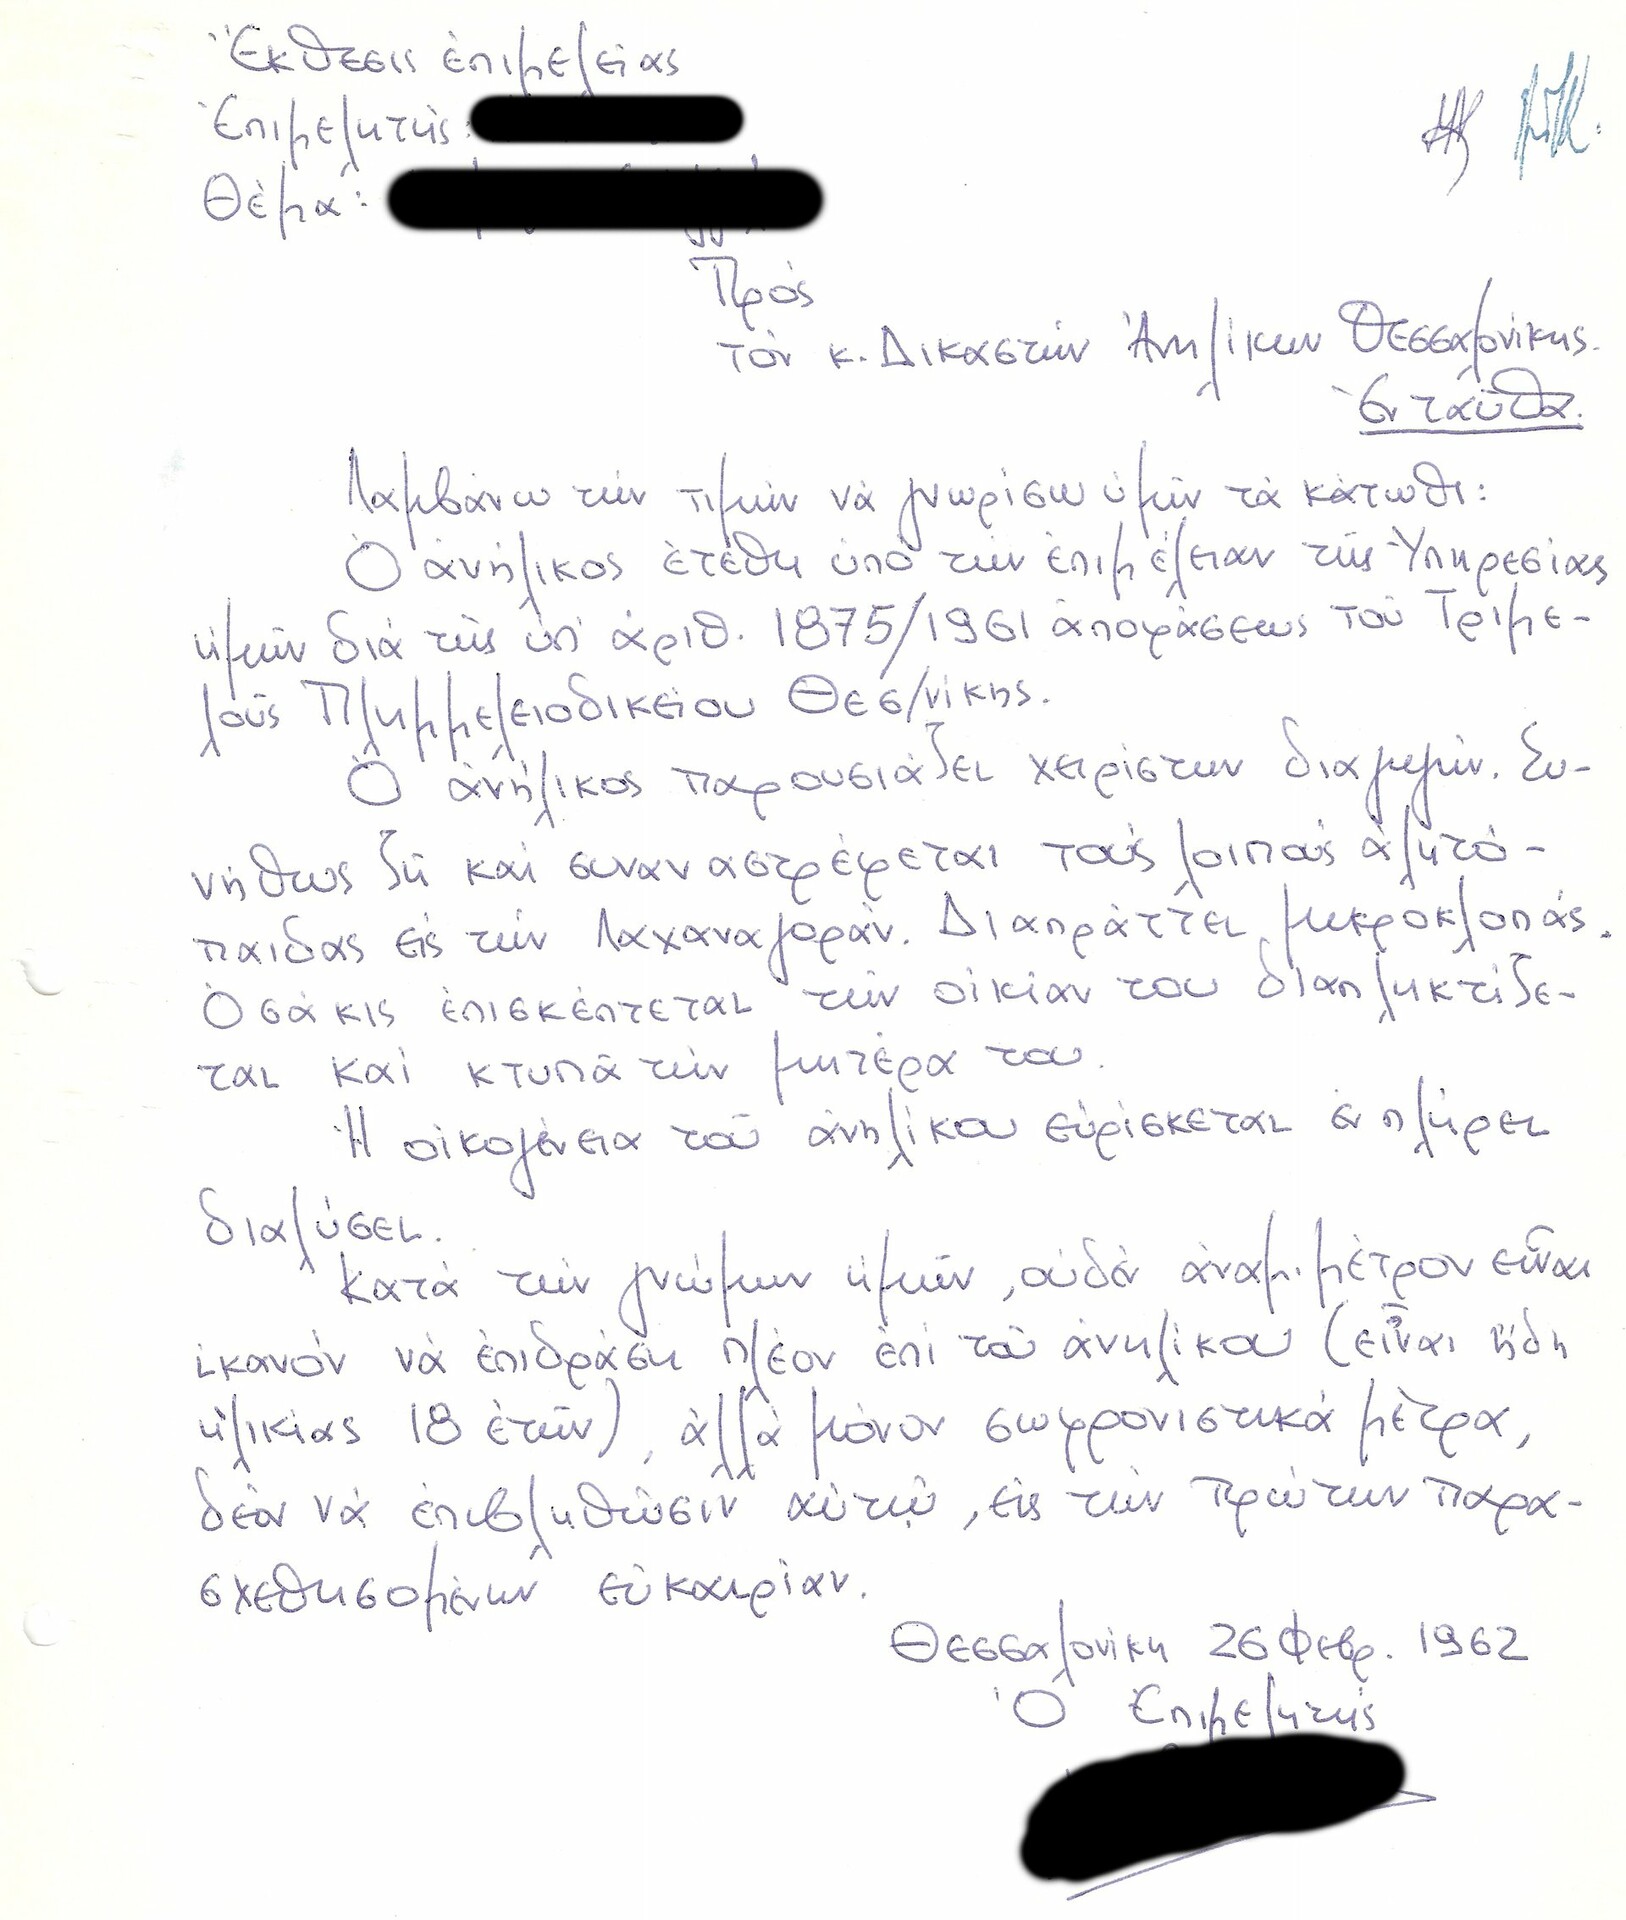 Ἔκθεσις ἐπιμελείας
Ἐπιμελητής:
Θέμα:
Πρὸς
τὸν κ. Δικαστὴν Ἀνηλίκων Θεσσαλονίκης.
Ἐνταῦθα.
Λαμβάνω τὴν τιμὴν νὰ γνωρίσω ὑμῖν τὰ κάτωθι:
Ὁ ἀνήλικος ἐτέθη ὑπὸ τὴν ἐπιμέλειαν τῆς Ὑπηρεσίας
ἡμῶν διὰ τῆς ὑπ' ἀριθ. 1875/1961 ἀποφάσεως τοῦ Τριμε-
λοῦς Πλημμελειοδικείου Θεσ/νίκης.
Ὁ ἀνήλικος παρουσιάζει χειρίστην διαγωγήν. Συ-
νήθως ζῆ καὶ συναναστρέφεται τοὺς λοιποὺς ἀλητό-
παιδας εἰς τὴν Λαχαναγοράν. Διαπράττει μικροκλοπάς.
Ὁσάκις ἐπισκέπτεται τὴν οἰκίαν του διαπληκτίζε-
ται καὶ κτυπᾶ τὴν μητέρα του.
Ἡ οἰκογένεια τοῦ ἀνηλίκου εὑρίσκεται ἐν πλήρει
διαλύσει.
Κατὰ τὴν γνώμην ἡμῶν, οὐδὲν ἀναμ. μέτρον εἶναι
ἱκανὸν νὰ ἐπιδράση πλέον ἐπὶ τοῦ ἀνηλίκου (εἶναι ἤδη
ἡλικίας 18 ἐτῶν), ἀλλὰ μόνον σωφρονιστικὰ μέτρα,
δέον νὰ ἐπιβληθῶσιν αὐτῷ, εἰς τὴν πρώτην παρα-
σχεθησομένην εὐκαιρίαν.
Θεσσαλονίκη 26 Φεβρ. 1962
Ὁ Ἐπιμελητής